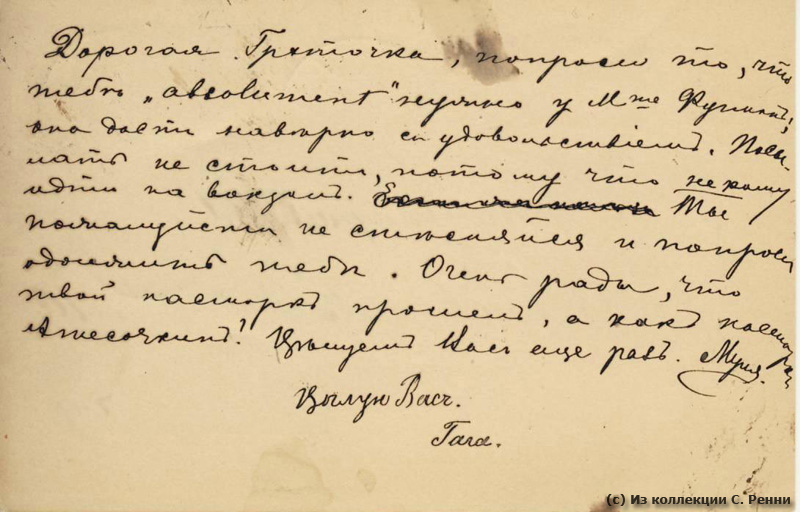 Дорогая Грёточка, попроси то, что
тебѣ „absolument“ нужно у Mme
она дастъ навѣрно съ удовольствіемъ. Посы-
лать не стоитъ, потому что некому
идти на вокзалъ. Ты
пожалуйста не стѣсняйся и попроси
одолжить тебѣ. Очень рады, что
твой насморкъ прошелъ, а какъ насморкъ
Цѣлуемъ Васъ еще разъ. Муля.
Цѣлую Васъ.
Тата.
(c) Из коллекции С. Ренни